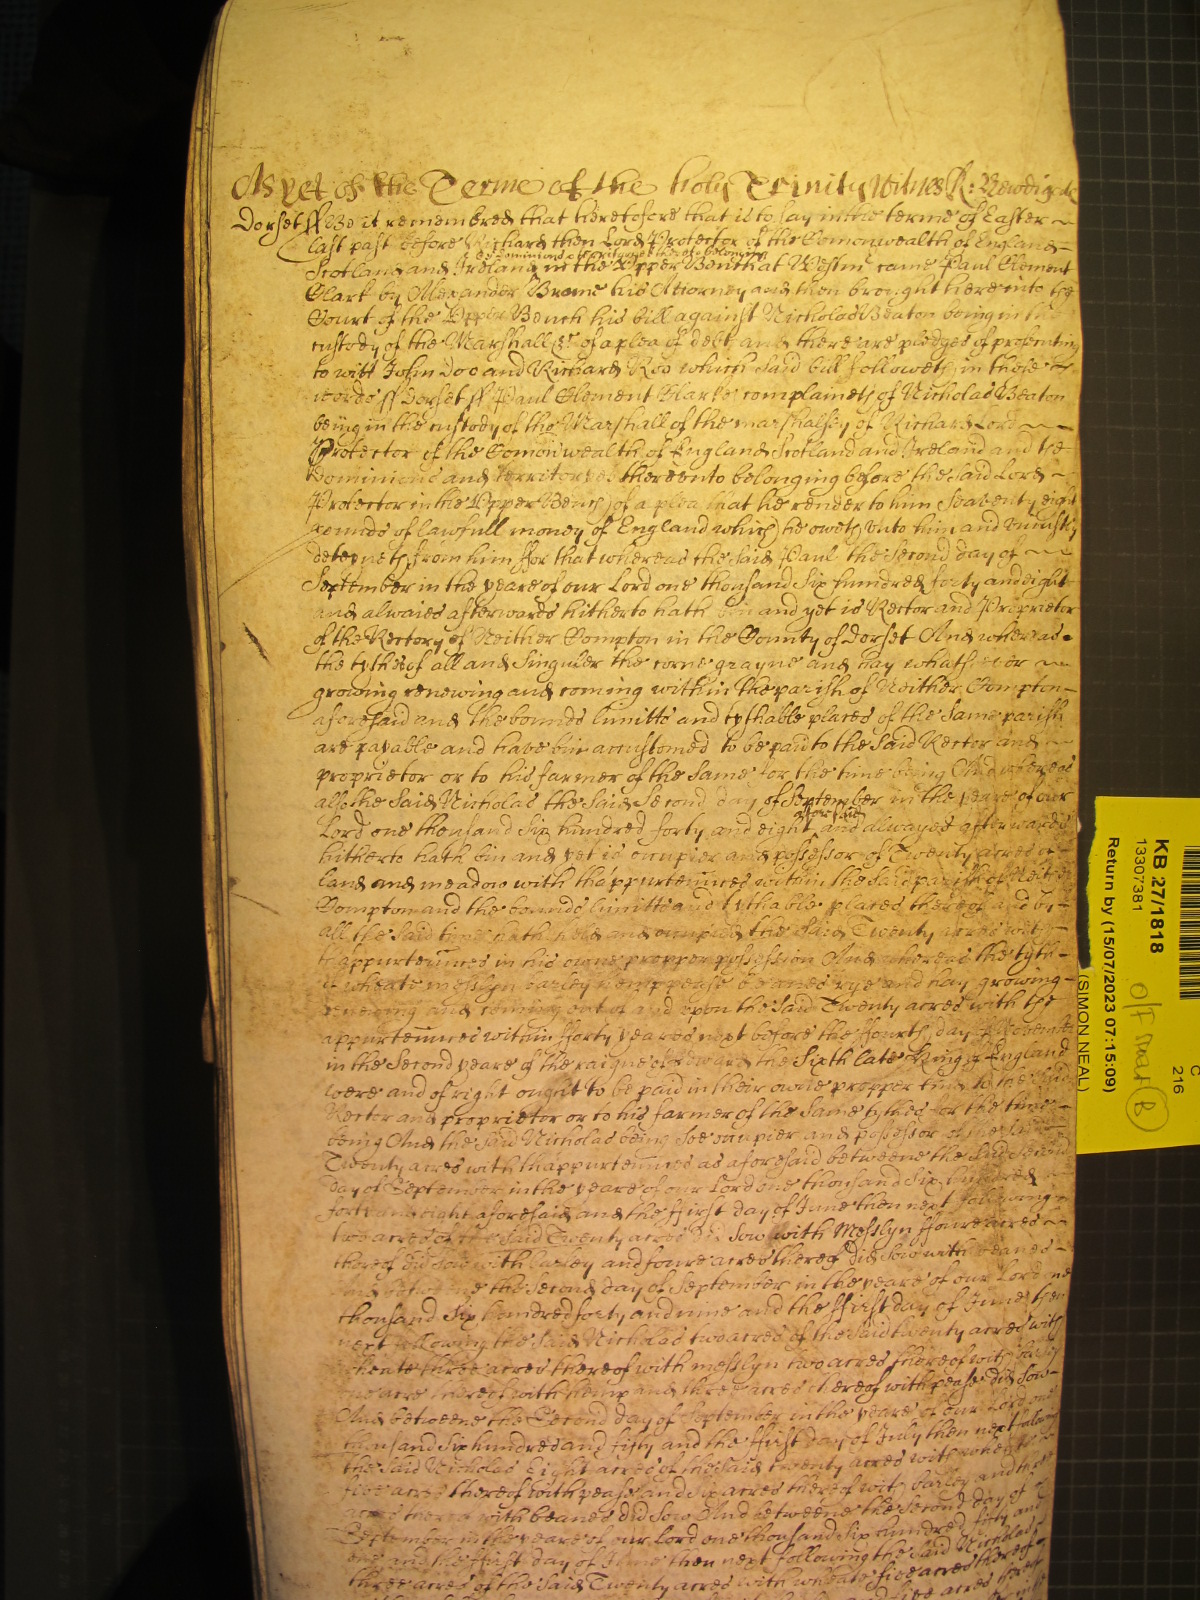 As yet of the Terme of the holy Trinity Witnes R: Newdigate
Dorset ss Be it remembred that heretofore that is to say in the terme of Easter
last past before Richard then Lord Protector of the Comonwealth of England
the dominions & territoryes thereto belonging
Scotland and Ireland in the Upper Bench at Westmr came Paul Clement
Clark by Alexander Brome his Attorney and then brought here into the
Court of the Upper Bench his bill against Nicholas Beaton being in the
custody of the Marshall &c of a plea of debt and there are pledges of prosecuting
to witt John Doo and Richard Roo which said bill followeth in these
words ss Dorset ss Paul Clement Clarke complaineth of Nicholas Beaton
being in the custody of the Marshall of the marshalsey of Richard Lord
Protector of the Comonwealth of England Scotland and Ireland and the
Dominions and territoryes thereunto belonging before the said Lord
Protector in the Upper Bench of a plea that he render to him Seaventy eight
pounds of lawfull money of England which he oweth unto him and uniustly
deteyneth from him ffor that whereas the said Paul the second day of
September in the yeare of our Lord one thousand Six hundred forty and eight
and alwaies afterwards hitherto hath bin and yet is Rector and Proprietor
of the Rectory of Neither Compton in the County of Dorset And whereas
the tythes of all and Singuler the corne grayne and hay whatsoever
growing renewing and coming within the parish of Neither Compton
aforesaid and the bounds limitts and tythable places of the same parish
are payable and have bin accustomed to be paid to the said Rector and
proprietor or to his farmer of the same for the time being And whereas
also the said Nicholas the said Second day of September in the yeare of our
aforesaid
Lord one thousand Six hundred forty and eight and alwayes afterwards
hitherto hath bin and yet is occupier and possessor of Twenty acres of
land and meadow with thappurtennces within the said parish of Neither
Compton and the bounds limitts and tythable places thereof and by
all the said time hath held and occupied the said Twenty acres with
thappurtennces in his owne propper possession And whereas the tyth
of wheate messlyn barley hemp pease beanes rye and hay growing
renewing and coming out of and upon the said Twenty acres with the
appurtennces within fforty yeares next before the ffourth day of November
in the Second yeare of the raigne of Edward the Sixth late King of England
were and of right ought to be paid in their owne propper kind to the said
Rector and proprietor or to his farmer of the same tythes for the time
being And the said Nicholas being soe occupier and possessor of the said
Twenty acres with thappurtennces as aforesaid betweene the said second
day of September in the yeare of our Lord one thousand Six hundred
forty and eight aforesaid and the ffirst day of June then next following
two acres of the said Twenty acres did sow with Messlyn ffoure acres
thereof did sow with barley and foure acres thereof did sow with beanes
And betweene the second day of September in the yeare of our Lord one
thousand Six hundred forty and nine and the ffirst day of June then
next following the said Nicholas two acres of the said twenty acres with
wheate three acres thereof with messlyn two acres thereof with barley
one acre thereof with hemp and three acres thereof with pease did sow
And betweene the Second day of September in the yeare of our Lord one
thousand Six hundred and fifty and the ffirst day of July then next following
the said Nicholas Eight acres of the said twenty acres with wheate
five acres thereof with pease and six acres thereof with barley and three
acres thereof with beanes did sow And betweene the second day of
September in the yeare of our Lord one thousand Six hundred fifty and
one and the ffirst day of June then next following the said Nicholas
three acres of the said Twenty acres with wheate five acres thereof
five acres thereof
KB 27/1818
13307381
Return by (15/07/2023 07:15:09)
(SIMON NEAL)
C
216
O/F Map B